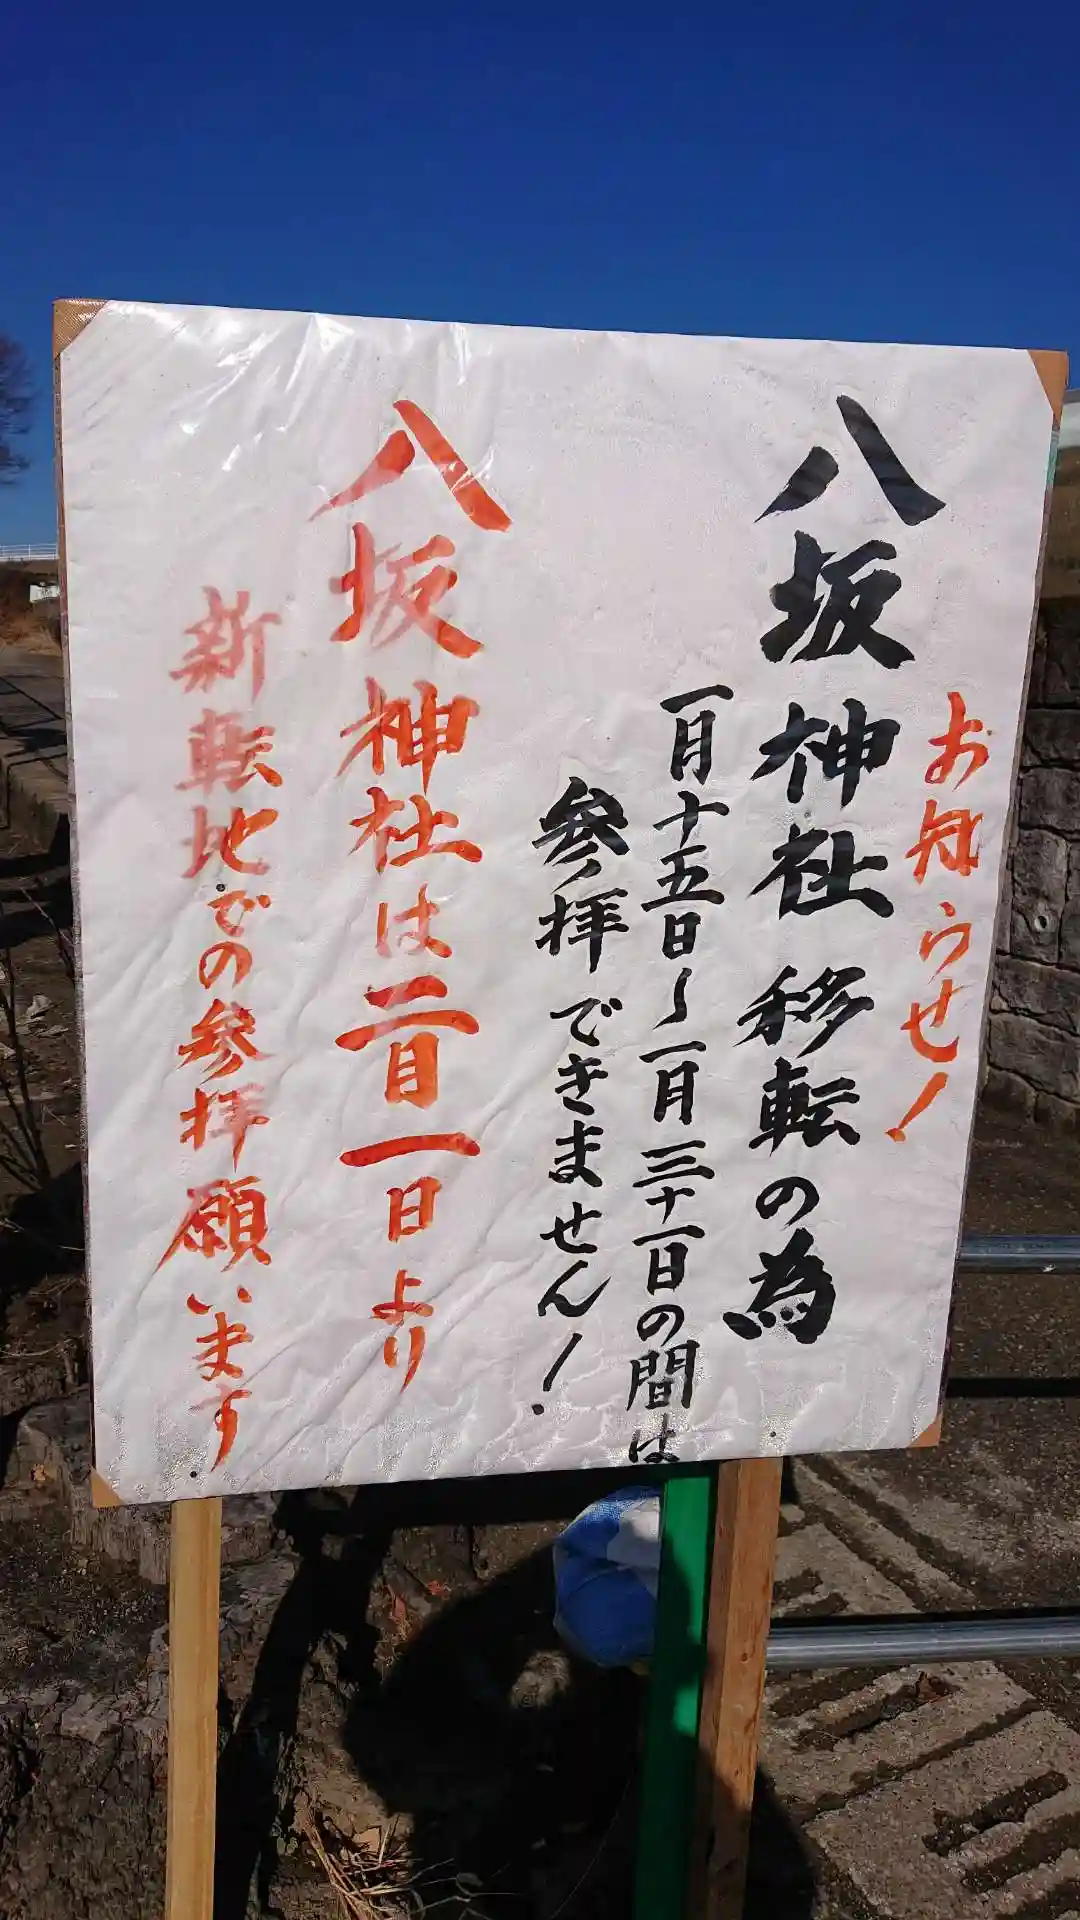 お知らせ!
八坂神社移転の為
一月十五日〜一月三十一日の間は
参拝できません!
八坂神社は二月一日より
新転地での参拝願います